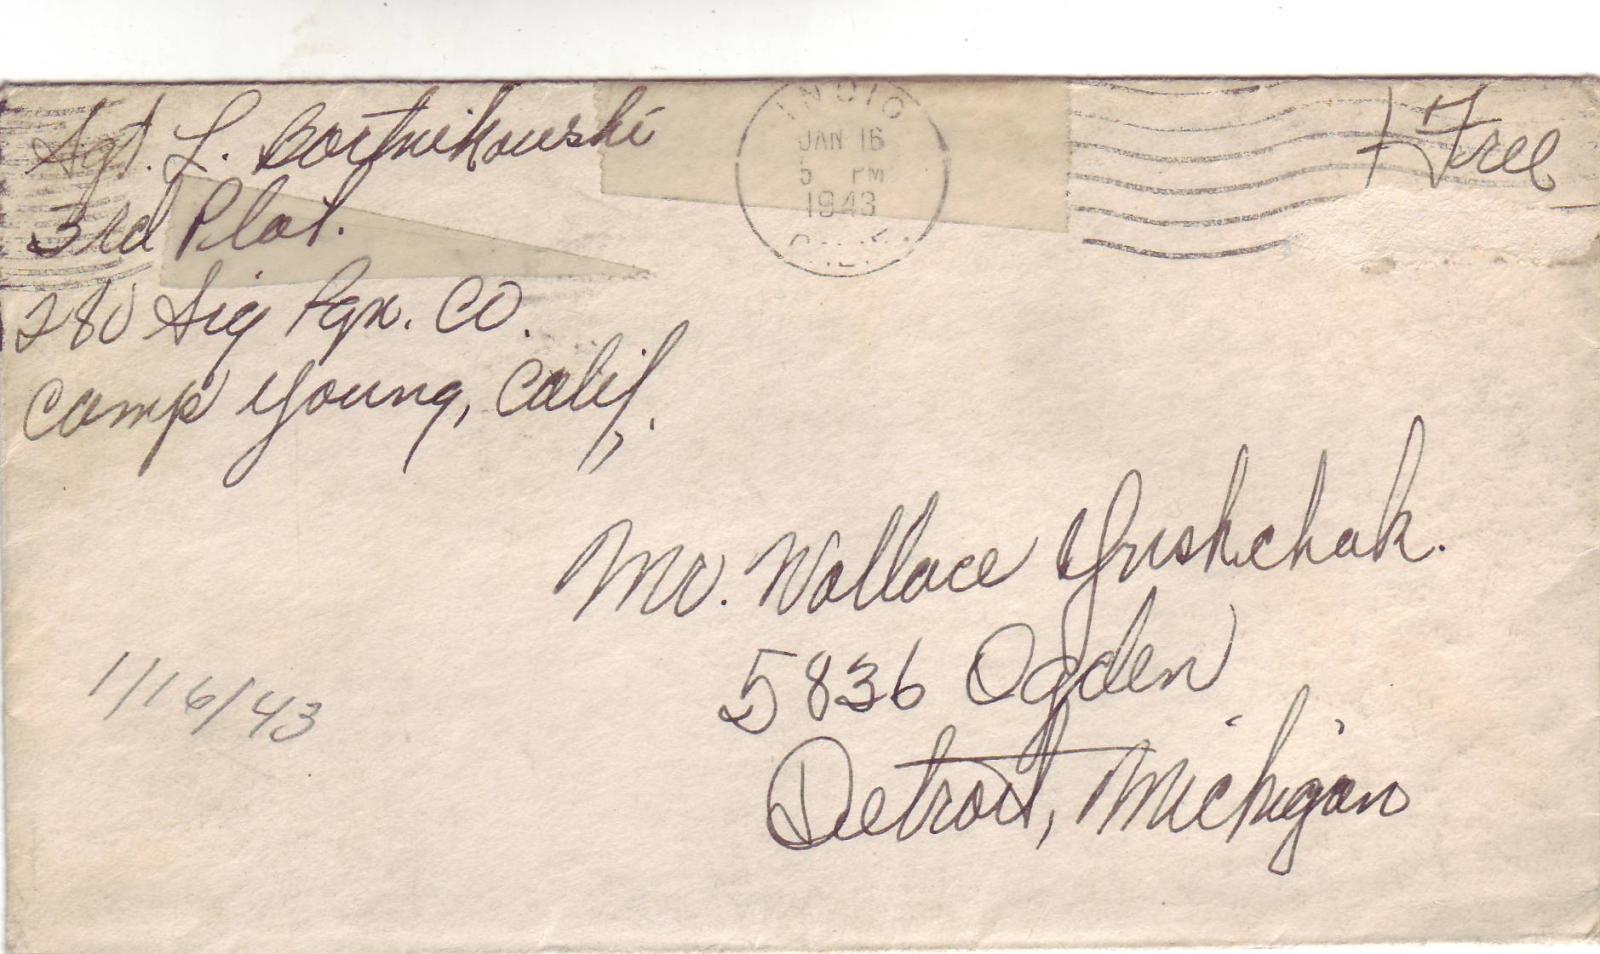 Sgt. L. Bortnikowski
3rd Plat.
280 Sig Pgn. Co.
Camp Young, Calif.
INDIO
JAN 16
5 PM
1943
CALIF.
Free
Mr. Wallace Yrishchak.
5836 Ogden
Detroit, Michigan
1/16/43